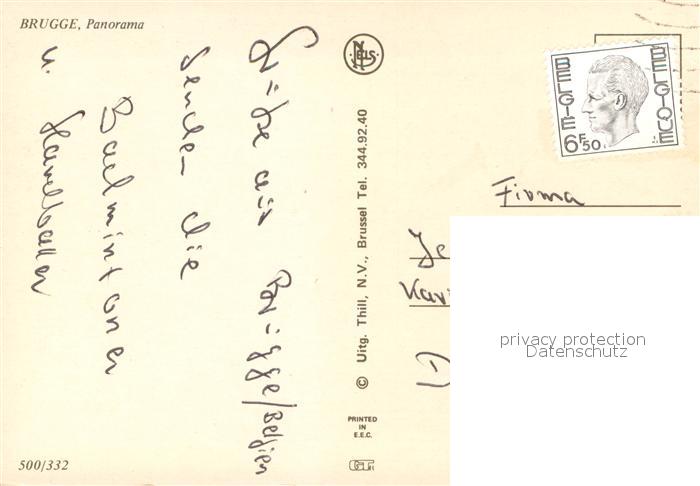 BRUGGE, Panorama
Grüße aus Brügge/Belgien
senden die
Badmintoner
u. Handballer
NELS
© Uitg. Thill, N.V., Brussel Tel. 344.92.40
PRINTED
IN
E.E.C.
500/332
BELGIE BELGIQUE
6F50
Firma
privacy protection
Datenschutz